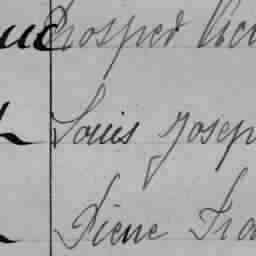 Prosper
Louis Josep
Pierre Fra